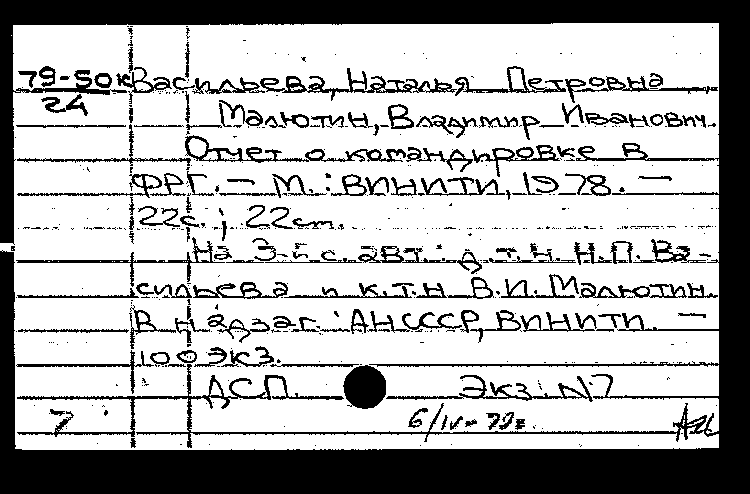 79-50к Васильева, Наталья Петровна,
24 Малютин, Владимир Иванович.
Отчет о командировке в
ФРГ. — М. : ВИНИТИ, 1978. —
22с. ; 22cm.
На 3-й с. авт.: д.т.н. Н.П. Ва-
сильева и к.т.н В.И. Малютин.
В надзаг.: АН СССР, ВИНИТИ. —
100 экз.
ДСП. Экз. N7
7 6/IV-79г.